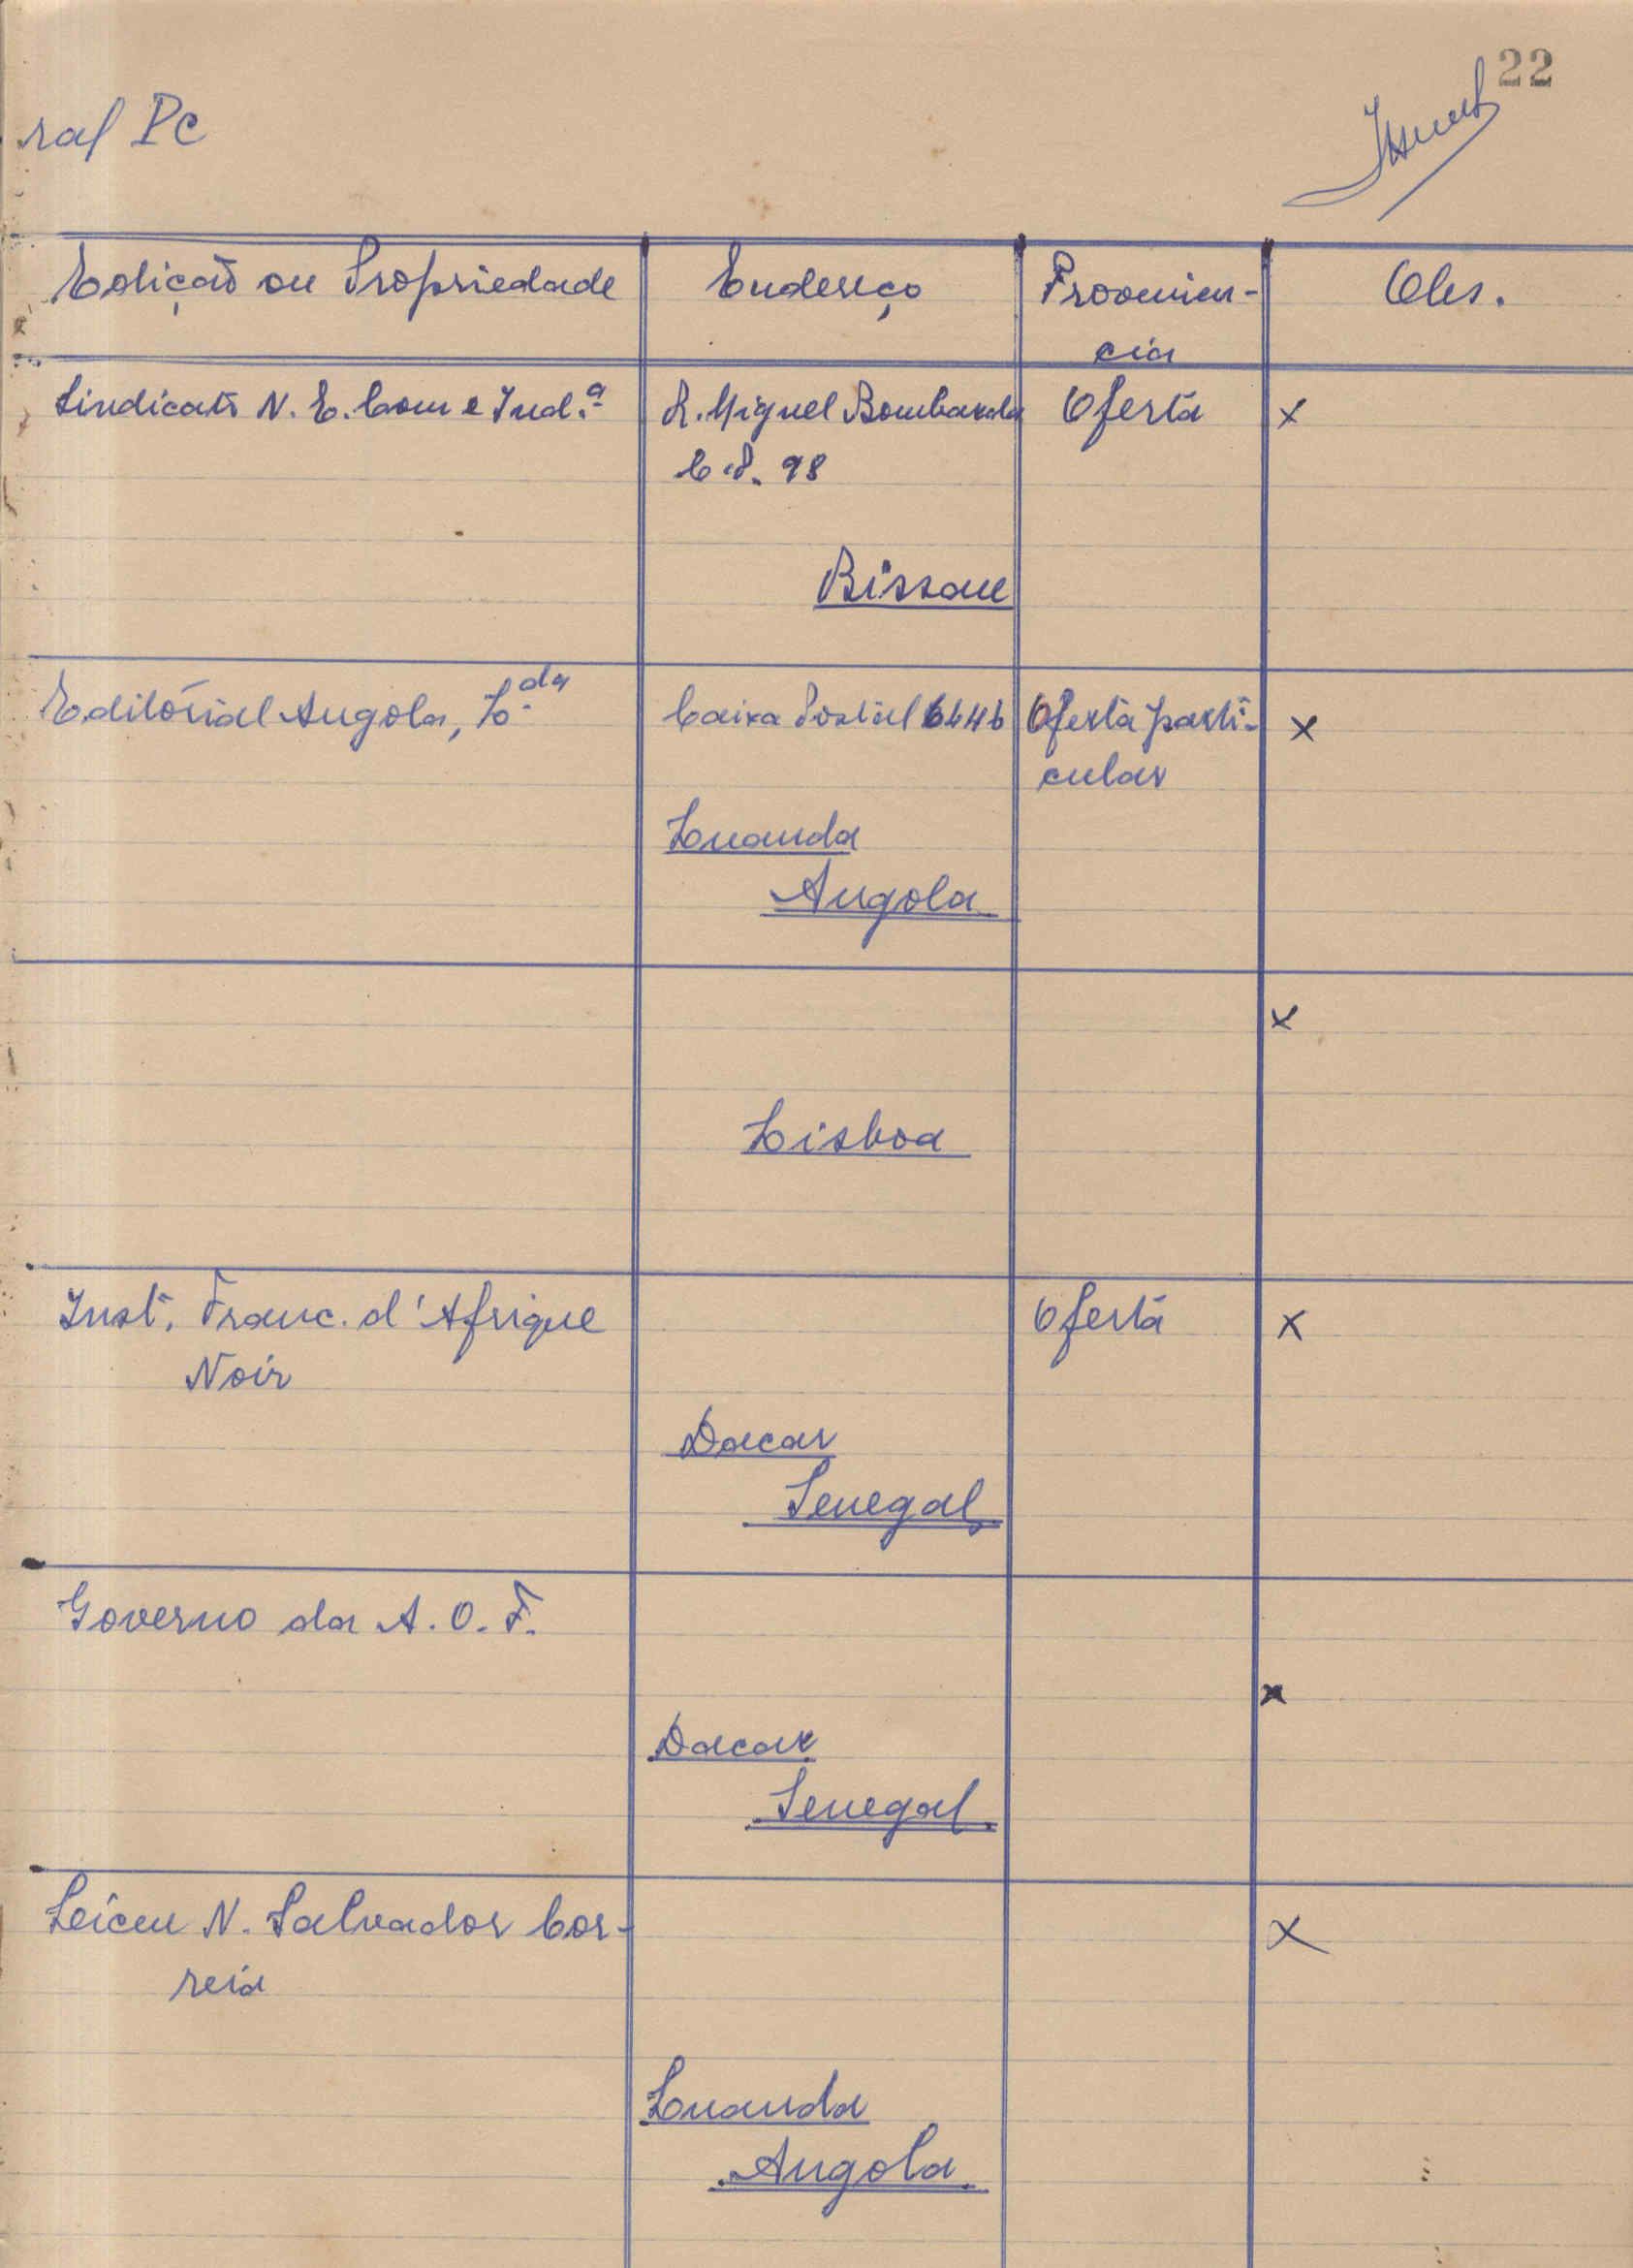 22
ral Pc
Edição ou Propriedade Endereço Provenien-
cia Obs.
Sindicato N. E. Com e Ind.ª R. Miguel Bombarda Oferta x
C.P. 98
Bissau
Editorial Angola, L.da Caixa Postal 6446 Oferta parti- x
cular
Luanda
Angola
x
Lisboa
Inst. Franc. d'Afrique Oferta x
Noir
Dacar
Senegal
Governo da A. O. F.
x
Dacar
Senegal
Leiceu N. Salvador Cor- x
reia
Luanda
Angola